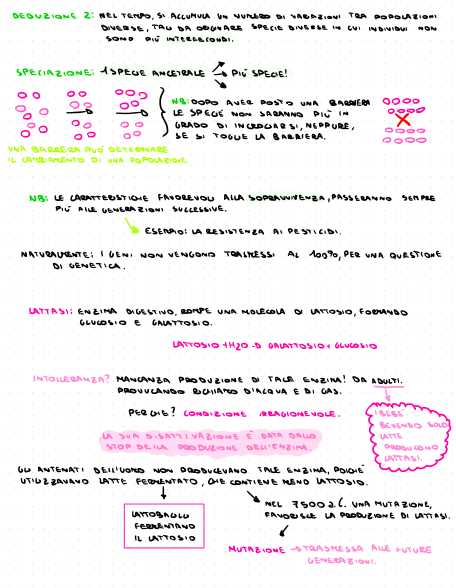 DEDUZIONE 2: NEL TEMPO, SI ACCUMULA UN NUMERO DI VARIAZIONI TRA POPOLAZIONI
DIVERSE, TALI DA ORIGINARE SPECIE DIVERSE IN CUI INDIVIDUI NON
SONO PIÙ INTERFECONDI.
SPECIAZIONE: 1 SPECIE ANCESTRALE → PIÙ SPECIE!
NB: DOPO AVER POSTO UNA BARRIERA
LE SPECIE NON SARANNO PIÙ IN
GRADO DI INCROCIARSI, NEPPURE,
SE SI TOGLIE LA BARRIERA.
UNA BARRIERA PUÒ DETERMINARE
IL CAMBIAMENTO DI UNA POPOLAZIONE
NB: LE CARATTERISTICHE FAVOREVOLI ALLA SOPRAVVIVENZA, PASSERANNO SEMPRE
PIÙ ALLE GENERAZIONI SUCCESSIVE.
ESEMPIO: LA RESISTENZA AI PESTICIDI.
NATURALMENTE: I GENI NON VENGONO TRASMESSI AL 100%, PER UNA QUESTIONE
DI GENETICA.
LATTASI: ENZIMA DIGESTIVO, ROMPE UNA MOLECOLA DI LATTOSIO, FORMANDO
GLUCOSIO E GALATTOSIO.
LATTOSIO + H2O → GALATTOSIO + GLUCOSIO
INTOLLERANZA? MANCANZA PRODUZIONE DI TALE ENZIMA! DA ADULTI.
PROVOCANDO RICHIAMO D'ACQUA E DI GAS.
PERCHÉ? CONDIZIONE IRRAGIONEVOLE.
I BEBÈ
BEVENDO SOLO
LATTE
PRODUCONO
LATTASI.
LA SUA DISATTIVAZIONE È DATA DALLO
STOP DELLA PRODUZIONE DELL'ENZIMA.
GLI ANTENATI DELL'UOMO NON PRODUCEVANO TALE ENZIMA, POICHÉ
UTILIZZAVANO LATTE FERMENTATO, CHE CONTIENE MENO LATTOSIO.
LATTOBACILLI
FERMENTANO
IL LATTOSIO
NEL 7500 a.C. UNA MUTAZIONE,
FAVORISCE LA PRODUZIONE DI LATTASI.
MUTAZIONE → TRASMESSA ALLE FUTURE
GENERAZIONI.